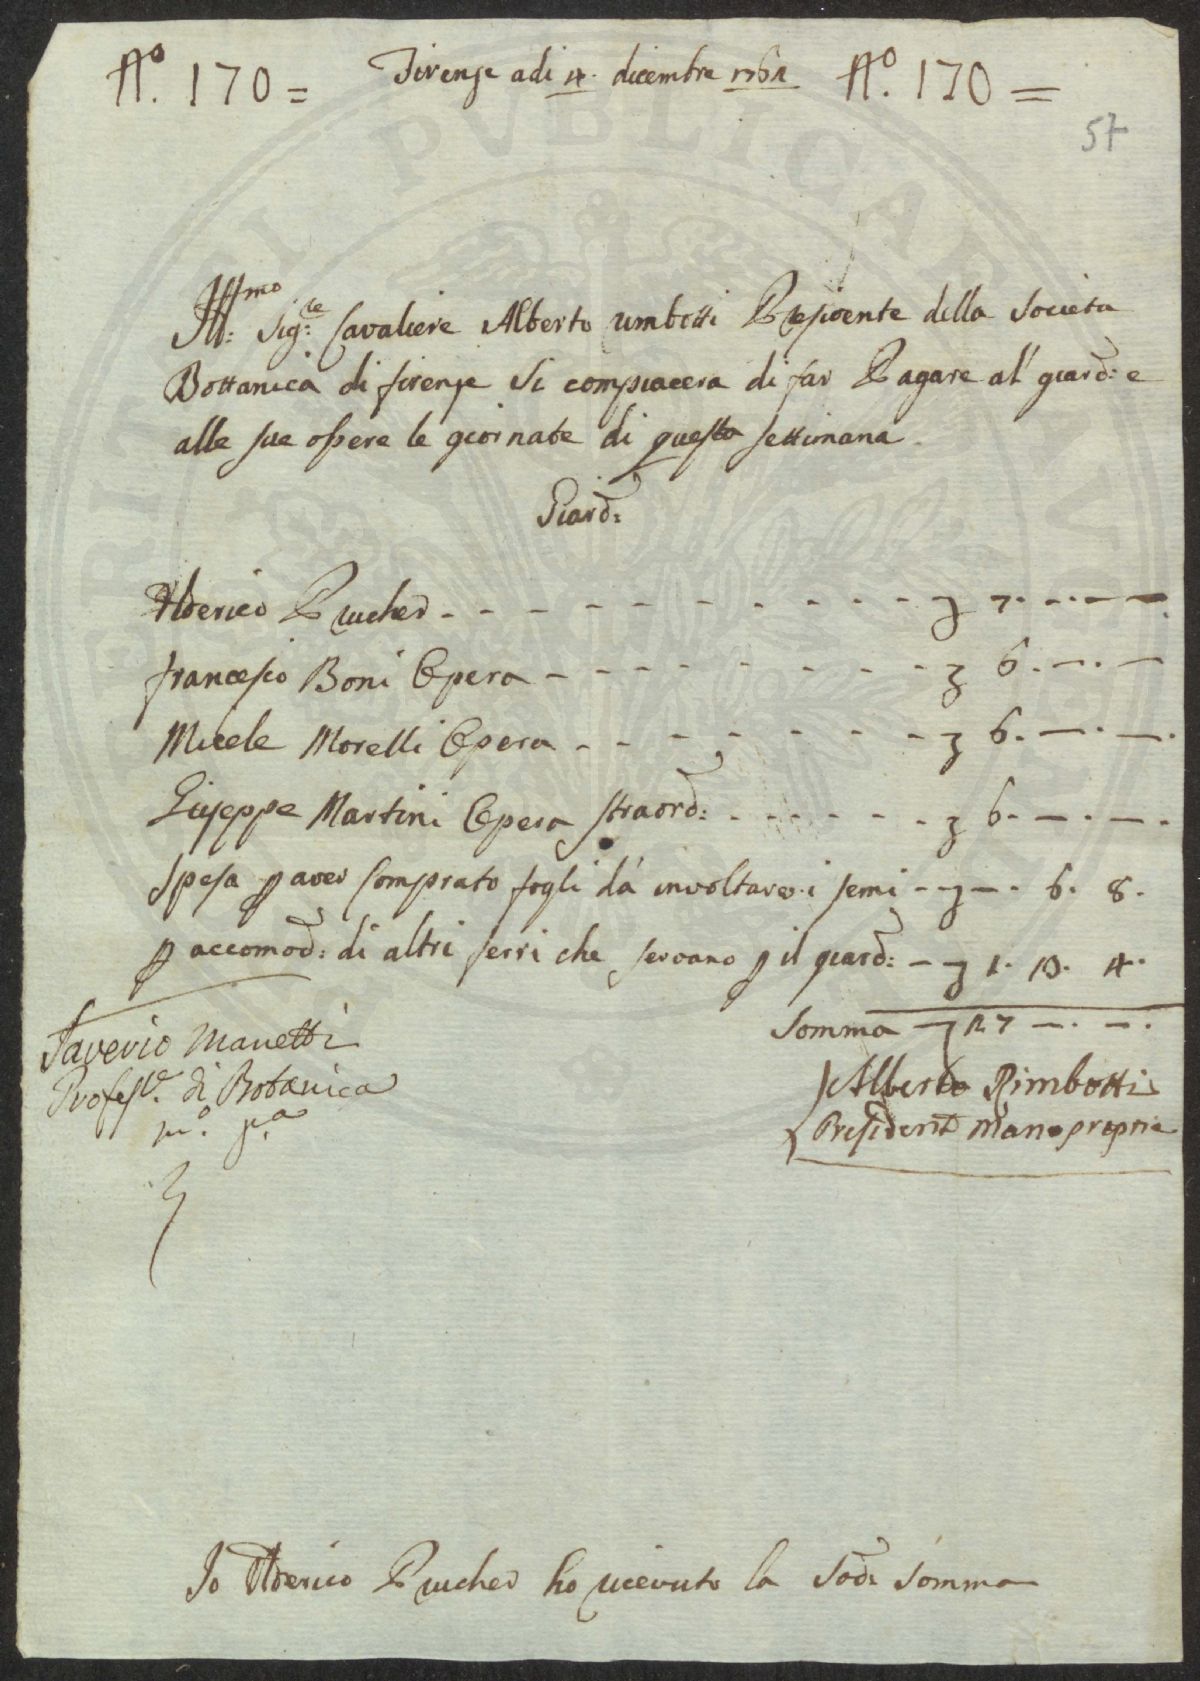 N.º 170 = Firenze adi 4. dicembre 1761 N.º 170 =
57
Ill:mo Sig:re Cavaliere Alberto rimbotti Presidente della Societa
Bottanica di firenze Si compiacera di far Pagare al' giard: e
alle sue opere le giornate di questa settimana
Giard:
Ulderico Prucher - - - - - - - - - - 7. -. -
francesco Boni Opera - - - - - - - - 6. -. -
Micele Morelli Opera - - - - - - - 6. -. -.
Giuseppe Martini Opera straord: - - - - - - 6. -. -.
Spesa p aver Comprato fogli dà involtare i semi - - -. 6. 8.
p accomod: di altri ferri che servano p il giard: - 1. 13. 4.
Somma - 27 -. -.
Saverio Manetti
Profess.e di Botanica
m.º p.a
Alberto Rimbotti
Presidente Mano propria
Io Ulderico Prucher ho ricevuto la Sod: Somma